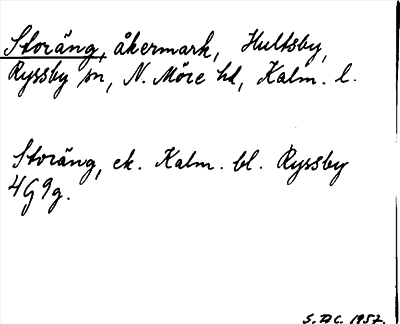 Storäng, åkermark, Hultsby,
Ryssby sn, N. Möre hd, Kalm. l.
Storäng, ek. Kalm. bl. Ryssby
4G9g.
1957.